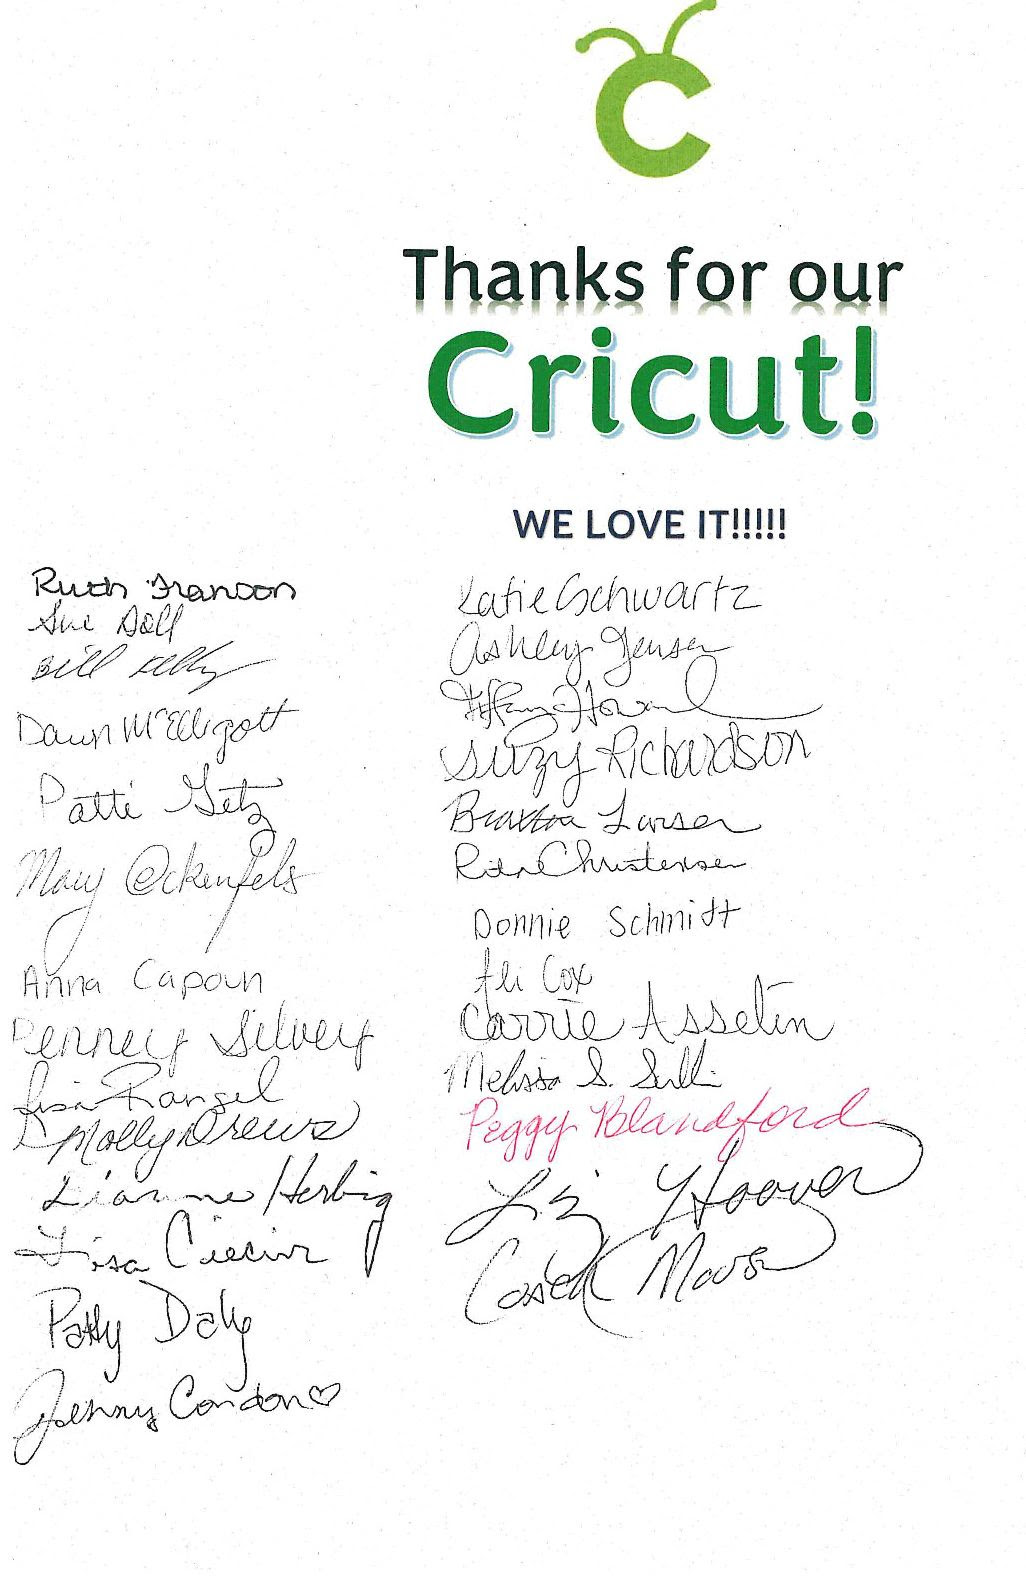 Thanks for our
Cricut!
WE LOVE IT!!!!!
Ruth Franson
Sue Doll
Bill Kelly
Dawn McElligott
Patti Getz
Mary Ockenfels
Anna Capoun
Penney Silvey
Lisa Rangel
Molly Drews
Dianne Herbig
Lisa
Patty Daly
Jenny Condon
Katie Schwartz
Ashley Jensen
Tiffany Howard
Suzy Richardson
Braxton Larsen
Christensen
Donnie Schmitt
Ali Cox
Carrie Asselin
Melissa S.
Peggy Blandford
Liz Hoover
Coach